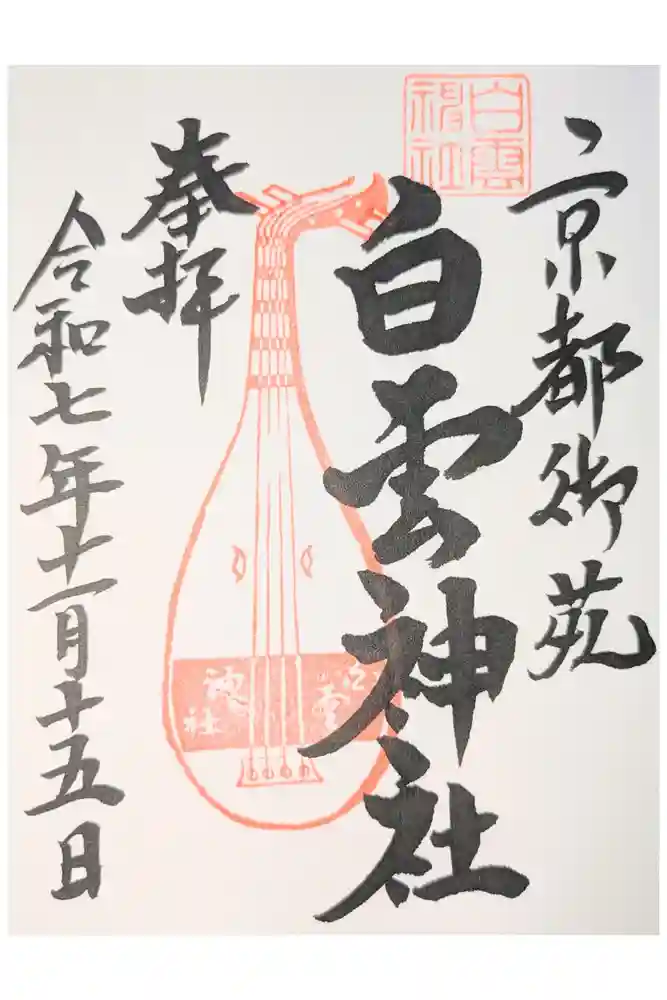 京都御苑
白雲神社
白雲神社
奉拝
白雲神社
令和七年十一月十五日